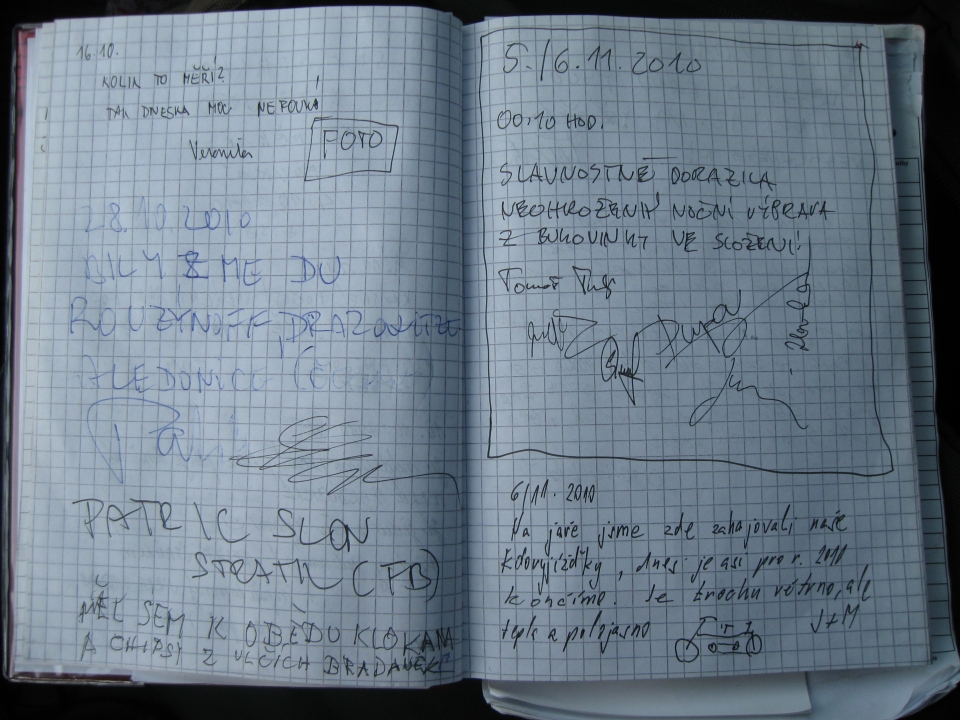 16.10.
KOLIK TO MĚŘÍ?
TAK DNESKA MOC NEFOUKÁ!
Veronika
FOTO
28.10.2010
BILY ZME DU
ROUZYNOFF, DRAZOWITZE
PATRIC SLON
STRATIL (FB)
MĚL SEM K OBĚDU KLOKANA
A CHIPSY Z VLČÍCH BRADAVEK?
5./6.11.2010
00:10 HOD.
SLAVNOSTNĚ DORAZILA
NEOHROŽENÁ NOČNÍ VÝPRAVA
Z BUKOVINKY VE SLOŽENÍ:
Tomáš
6/11. 2010
Na jaře jsme zde zahajovali naše
vyjížďky, dnes je asi pro r. 2010
končíme. Je trochu větrno, ale
teplo a polojasno
J+M